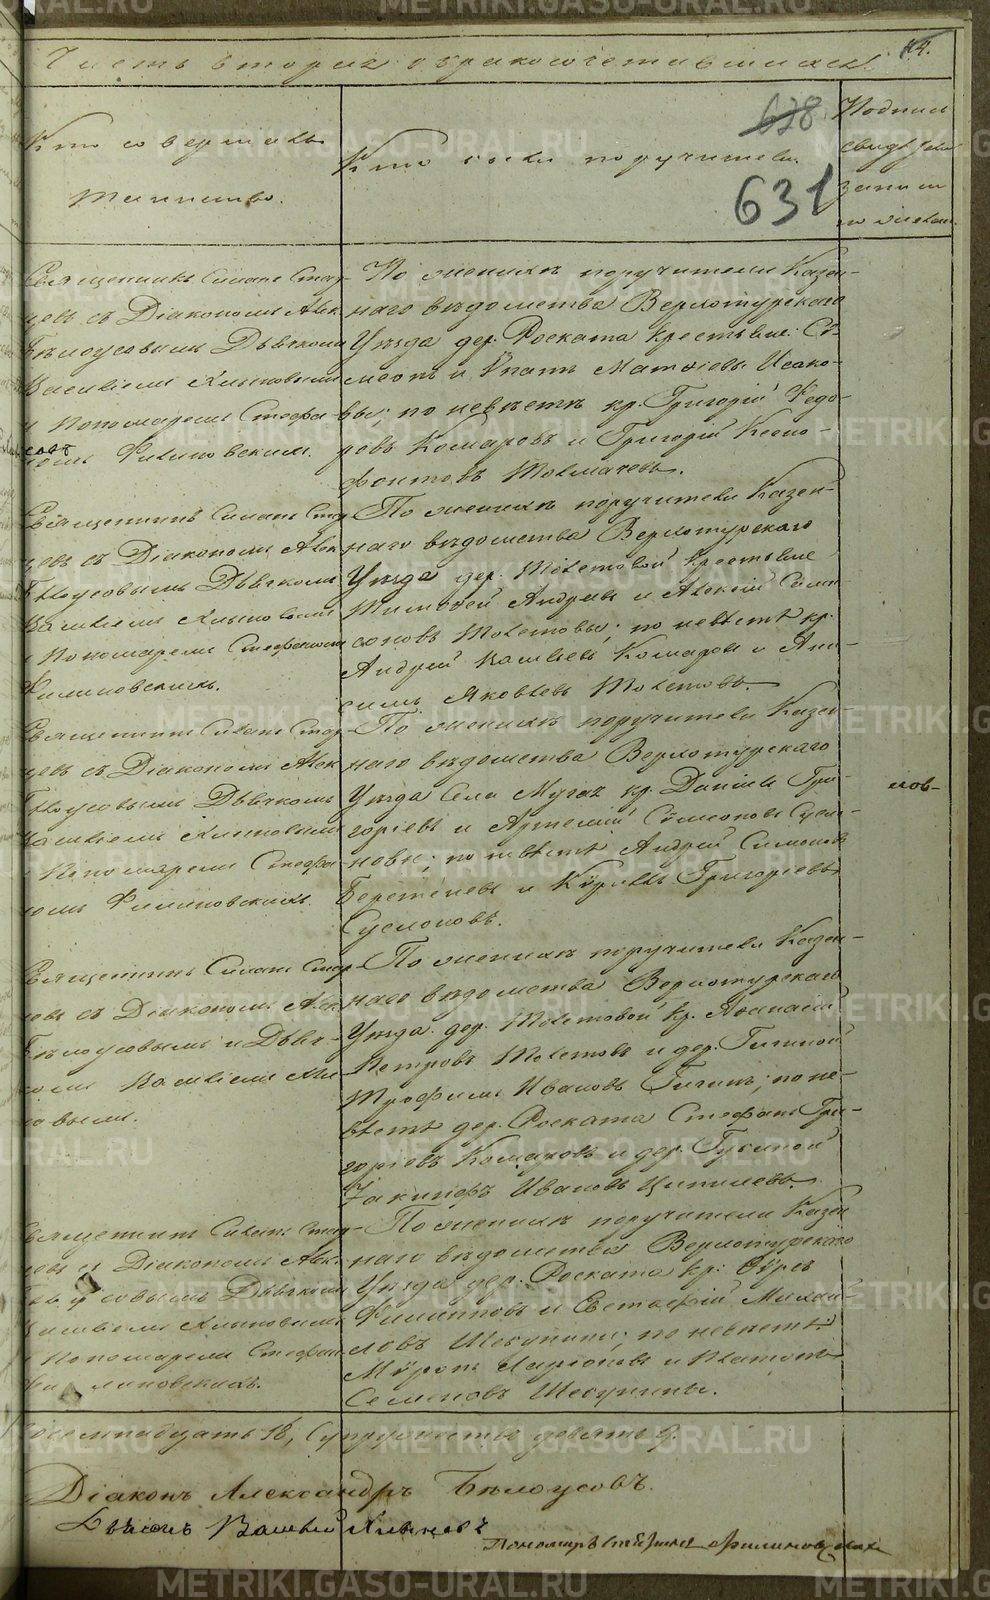 Часть вторая о бракосочетавшихся
Кто совершалъ
таинство.
Кто были поручители.
628
631
Подпись
свидѣтелей
записи
Священникъ Симонъ Стар-
цовъ съ Діакономъ Алек.
Бѣлоусовымъ Дьячкомъ
Василіемъ Хлыновымъ
и Пономаремъ Стефа-
номъ Филиновскимъ.
По женихѣ поручители Казен-
наго вѣдомства Верхотурскаго
Уѣзда дер. Роската крестьяне: Си-
меонъ и Ипатъ Матѳіевы Исако-
вы; по невѣстѣ кр. Григорій Ѳедо-
ровъ Комаровъ и Григорій Ксено-
фонтовъ Толмачевъ.
Священникъ Симонъ Стар-
цовъ съ Діакономъ Алек.
Бѣлоусовымъ Дьячкомъ
Василіемъ Хлыновымъ
и Пономаремъ Стефаномъ
Филиновскимъ.
По женихѣ поручители Казен-
наго вѣдомства Верхотурскаго
Уѣзда дер. Молетовой крестьяне
Тимоѳей Андреевъ и Алексій
Молетовы; по невѣстѣ кр.
Андрей Васильевъ Комаровъ и
Яковлевъ Молетовъ.
Священникъ Симонъ Стар-
цовъ съ Діакономъ Алек.
Бѣлоусовымъ Дьячкомъ
Василіемъ Хлыновымъ
и Пономаремъ Стефа-
номъ Филиновскимъ.
По женихѣ поручители Казен-
наго вѣдомства Верхотурскаго
Уѣзда Села Мугая кр. Даніилъ Гри-
горіевъ и Артемій Симеоновъ Сусло-
новы; по невѣстѣ Андрей Симоновъ
Берстеневъ и Кириллъ Григорьевъ
Суслоновъ.
Священникъ Симонъ Стар-
цовъ съ Діакономъ Алек.
Бѣлоусовымъ и Дьяч-
комъ Василіемъ Хлы-
новымъ.
По женихѣ поручители Казен-
наго вѣдомства Верхотурскаго
Уѣзда дер. Молетовой кр. Аѳанасій
Петровъ Молетовъ и дер.
Трофимъ Ивановъ; по не-
вѣстѣ дер. Роската Стефанъ Гри-
горіевъ Комаровъ и дер.
Іакинфъ Ивановъ
Священникъ Симонъ Стар-
цовъ съ Діакономъ Алек.
Бѣлоусовымъ Дьячкомъ
Василіемъ Хлыновымъ
и Пономаремъ Стефан.
Филиновскимъ.
По женихѣ поручители Казен-
наго вѣдомства Верхотурскаго
Уѣзда дер. Роската кр:
Филипповъ и Евстафій Михай-
ловъ Шекунины; по невѣстѣ
Миронъ Ларіоновъ и Платонъ
Семеновъ Шекунины.
нов-
восемнадцать 18, Супружествъ девять 9.
Діаконъ Александръ Бѣлоусовъ.
Дьячекъ Василій Хлыновъ
Пономарь Стефанъ Филиновскій
METRIKI.GASO-URAL.RU